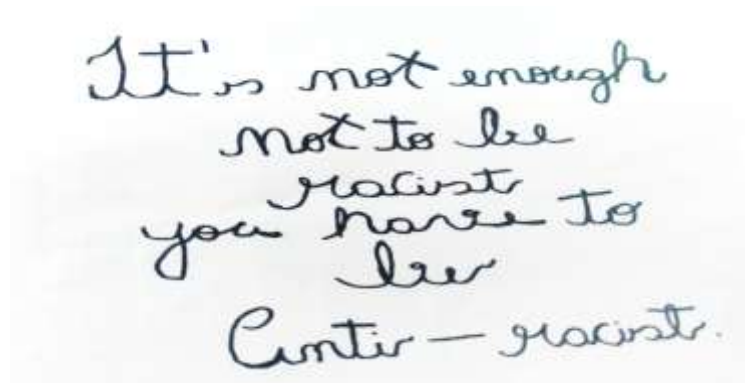 It's not enough
not to be
racist
you have to
be
Anti-racist.